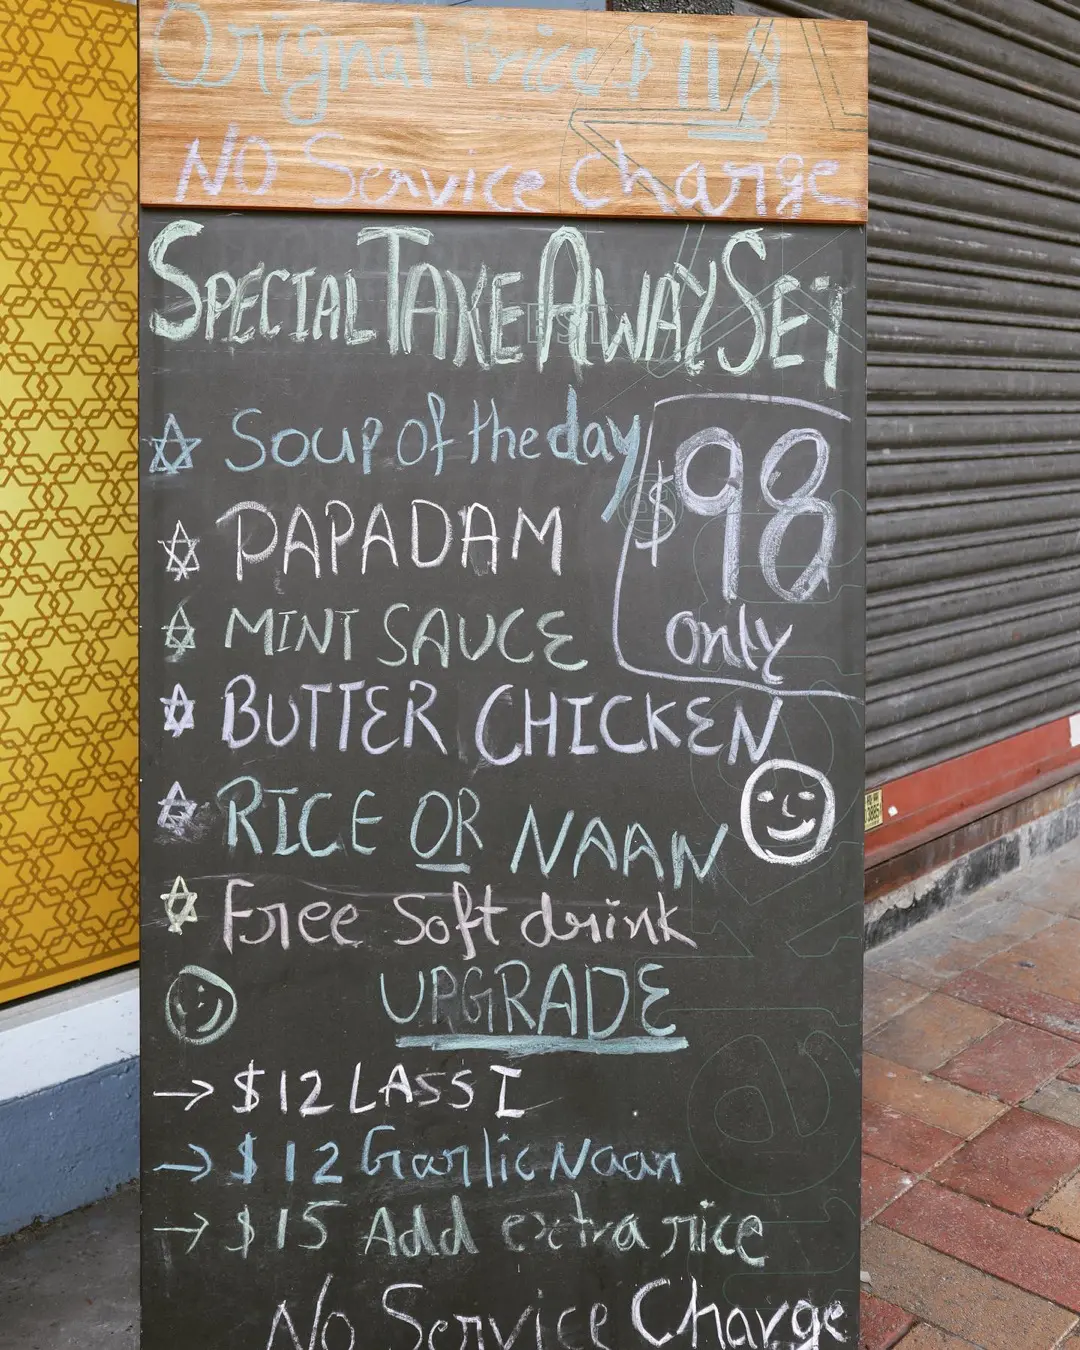 Orignal Price $118
No Service Charge
SPECIAL TAKE AWAY SET
Soup of the day
$98
PAPADAM
MINT SAUCE
only
BUTTER CHICKEN
RICE OR NAAN
Free Soft drink
UPGRADE
→ $12 LASSI
→ $12 Garlic Naan
→ $15 Add extra rice
No Service Charge